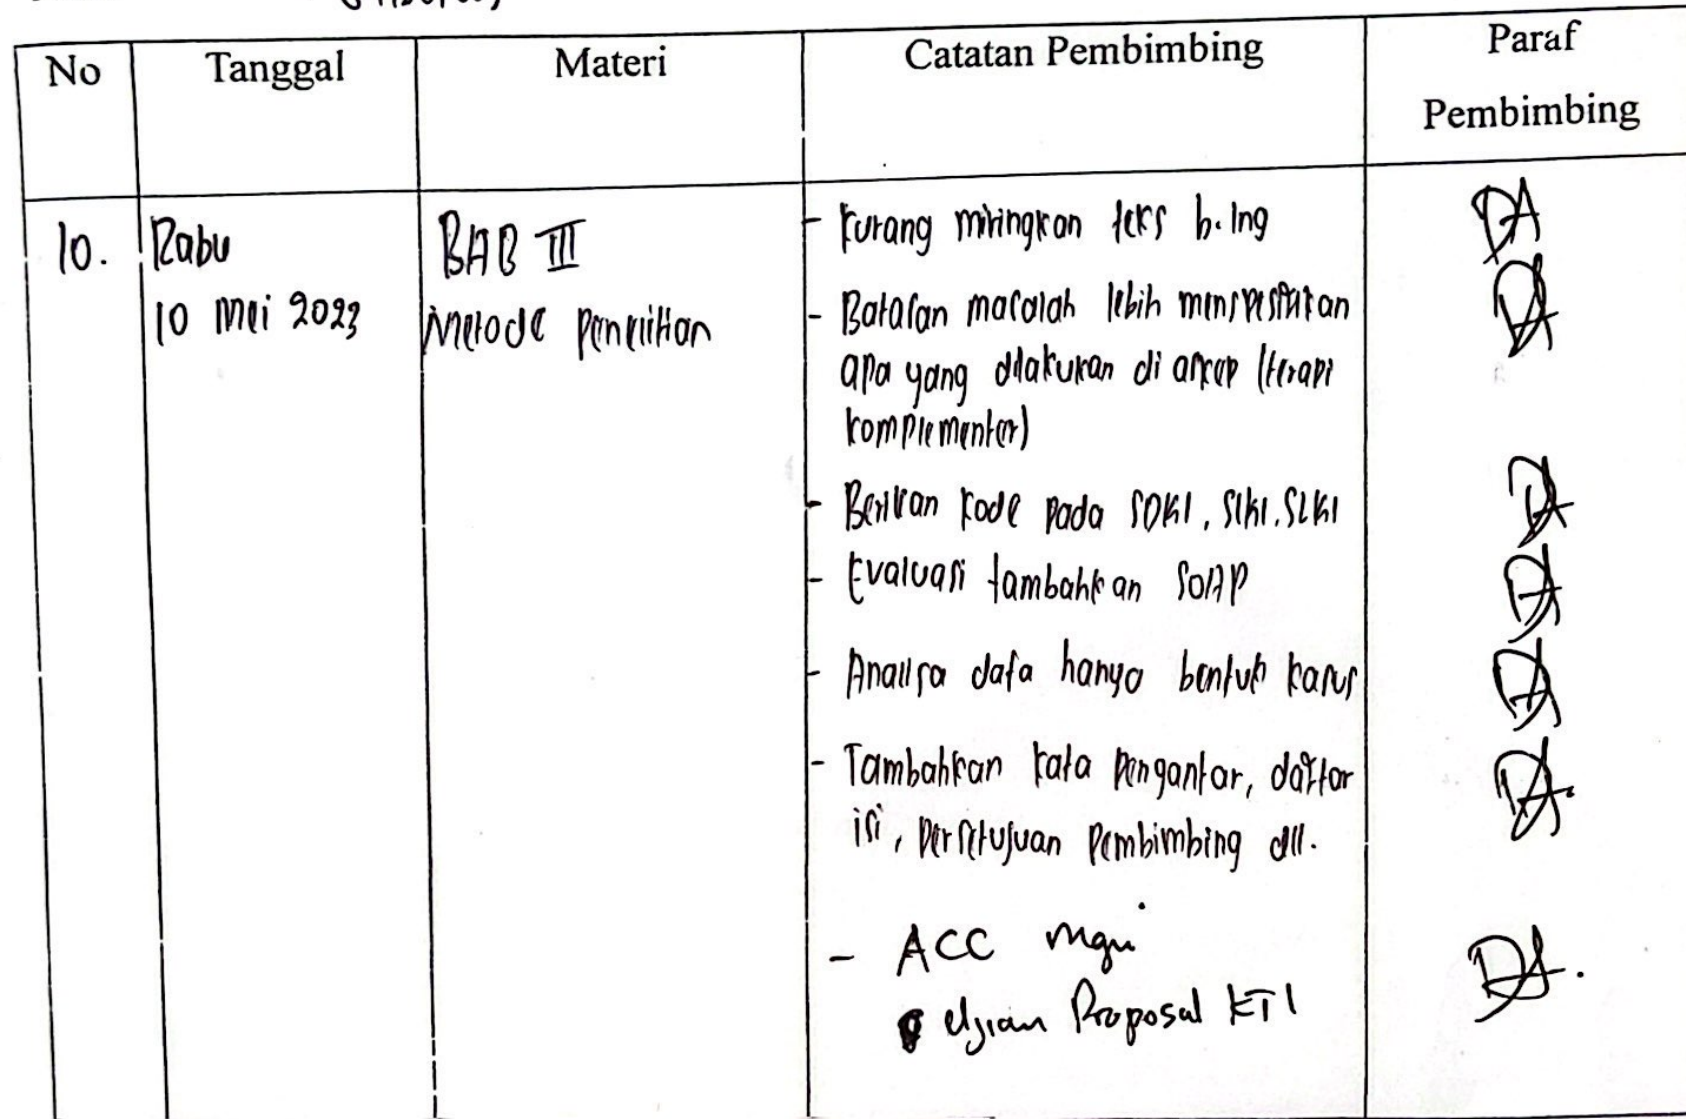 No Tanggal Materi Catatan Pembimbing Paraf
Pembimbing
10. Rabu BAB III - kurang miringkan teks b. Ing
10 Mei 2023 Metode Penelitian - Batasan masalah lebih menspesifikan
apa yang dilakukan di askep (terapi
komplementer)
- Berikan kode pada SDKI, SIKI, SLKI
- Evaluasi tambahkan SOAP
- Analisa data hanya bentuk kasus
- Tambahkan kata pengantar, daftar
isi, persetujuan pembimbing dll.
- ACC
Ujian Proposal KTI